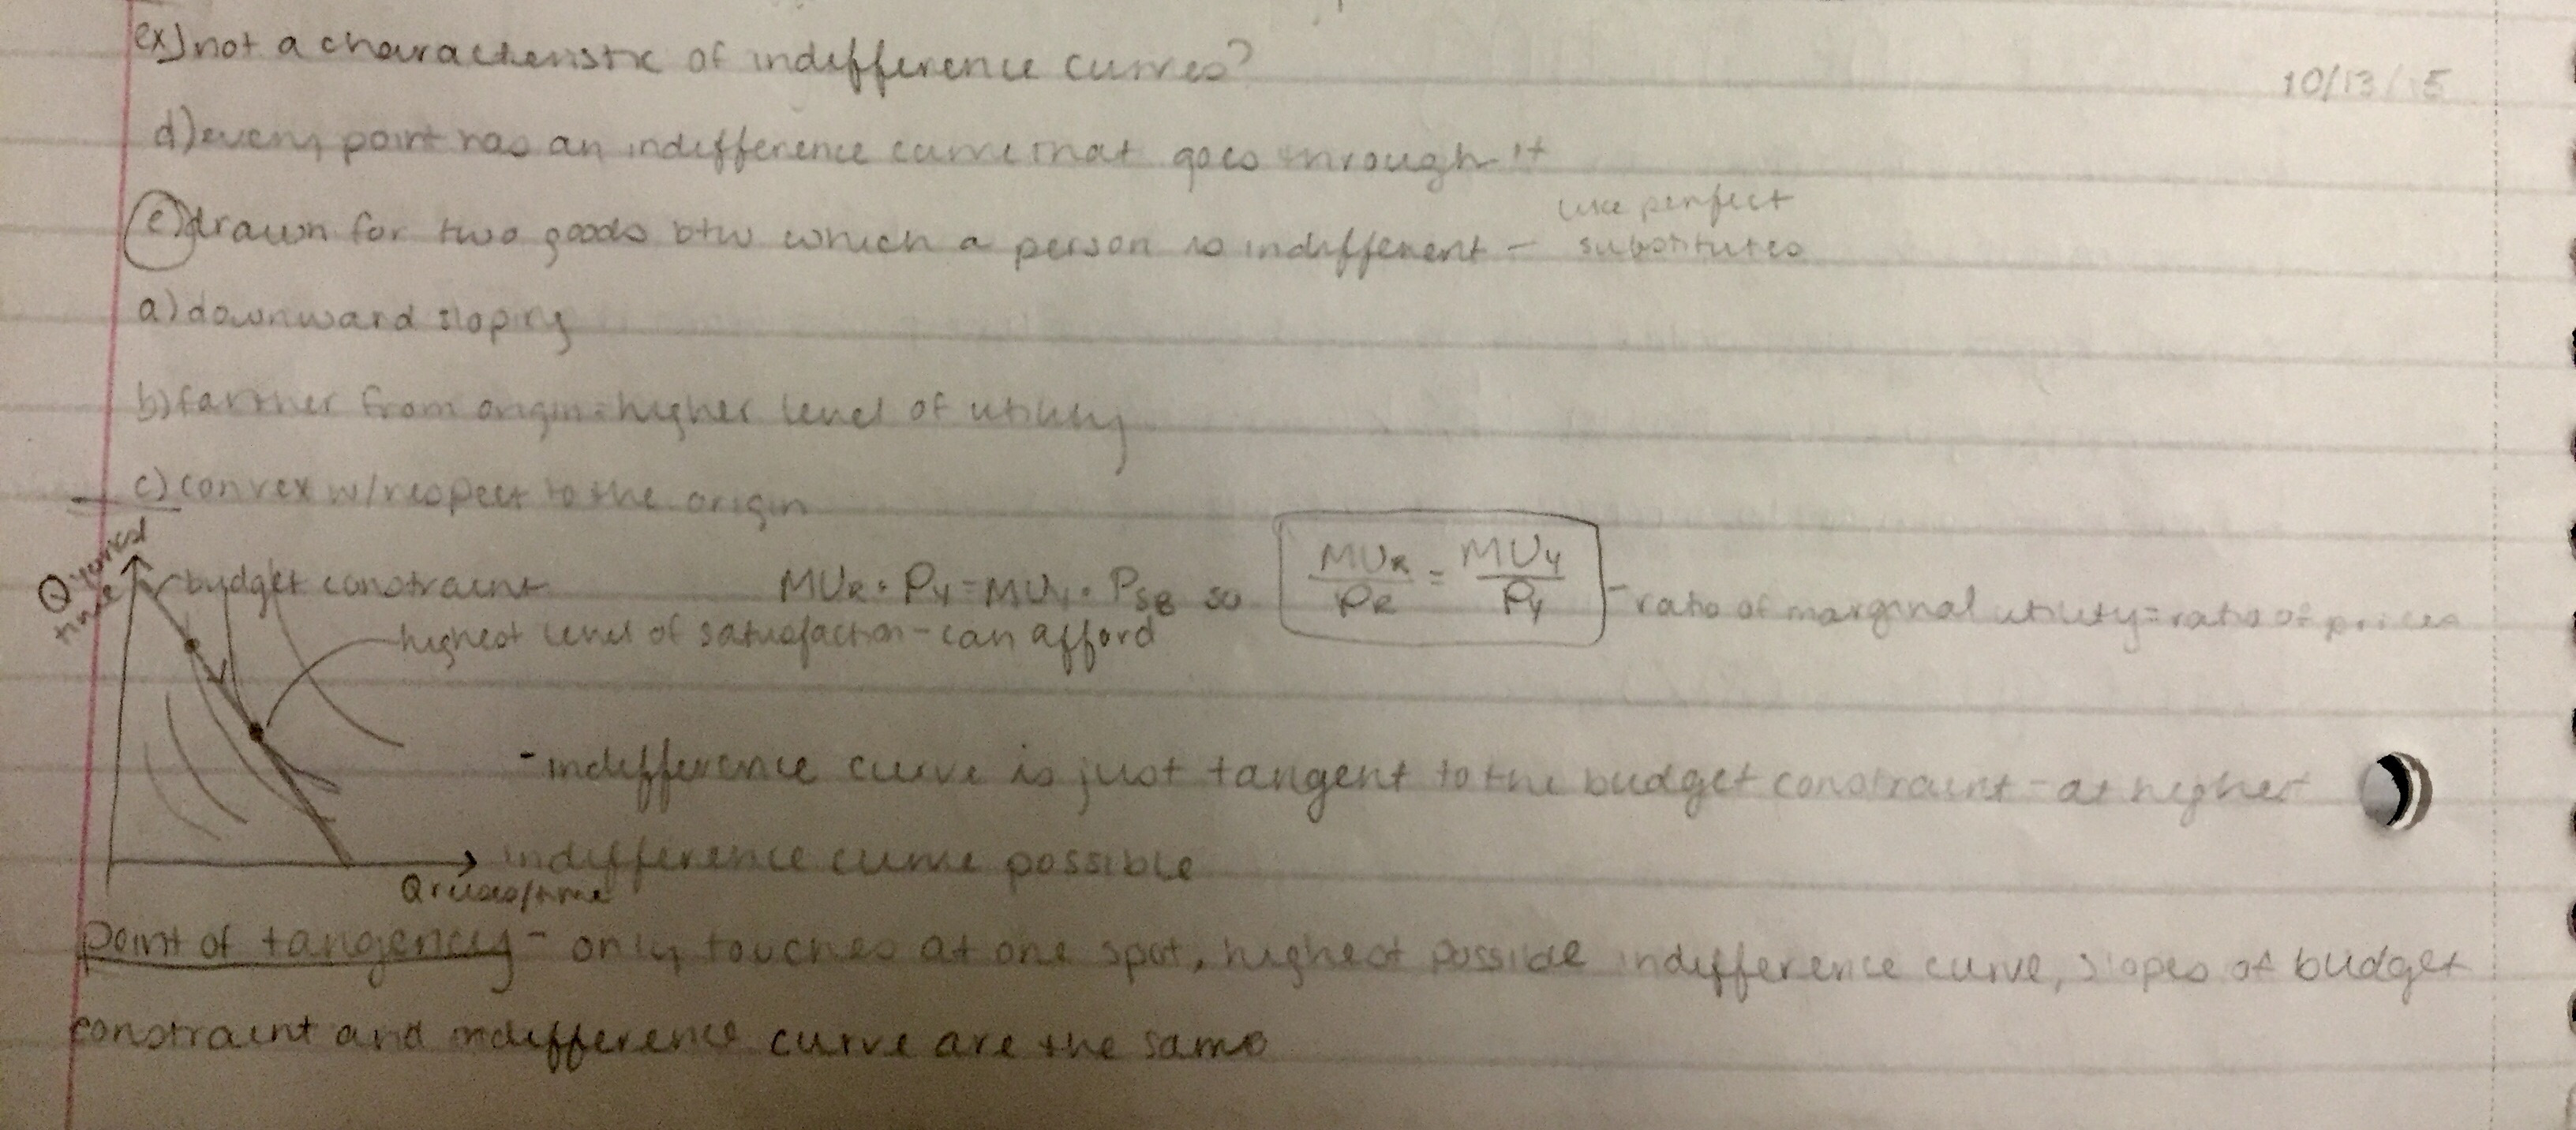 ex) not a characteristic of indifference curves?
10/13/15
d) every point has an indifference curve that goes through it
e) drawn for two goods btw which a person is indifferent - like perfect
substitutes
a) downward sloping
b) farther from origin = higher level of utility
c) convex w/respect to the origin
Q
time
budget constraint
MUR · PY = MUY · PSB so
MUR/PR = MUY/PY
- ratio of marginal utility = ratio of prices
highest level of satisfaction - can afford
- indifference curve is just tangent to the budget constraint - at highest
indifference curve possible
Q /time
point of tangency - only touches at one spot, highest possible indifference curve, slopes of budget
constraint and indifference curve are the same